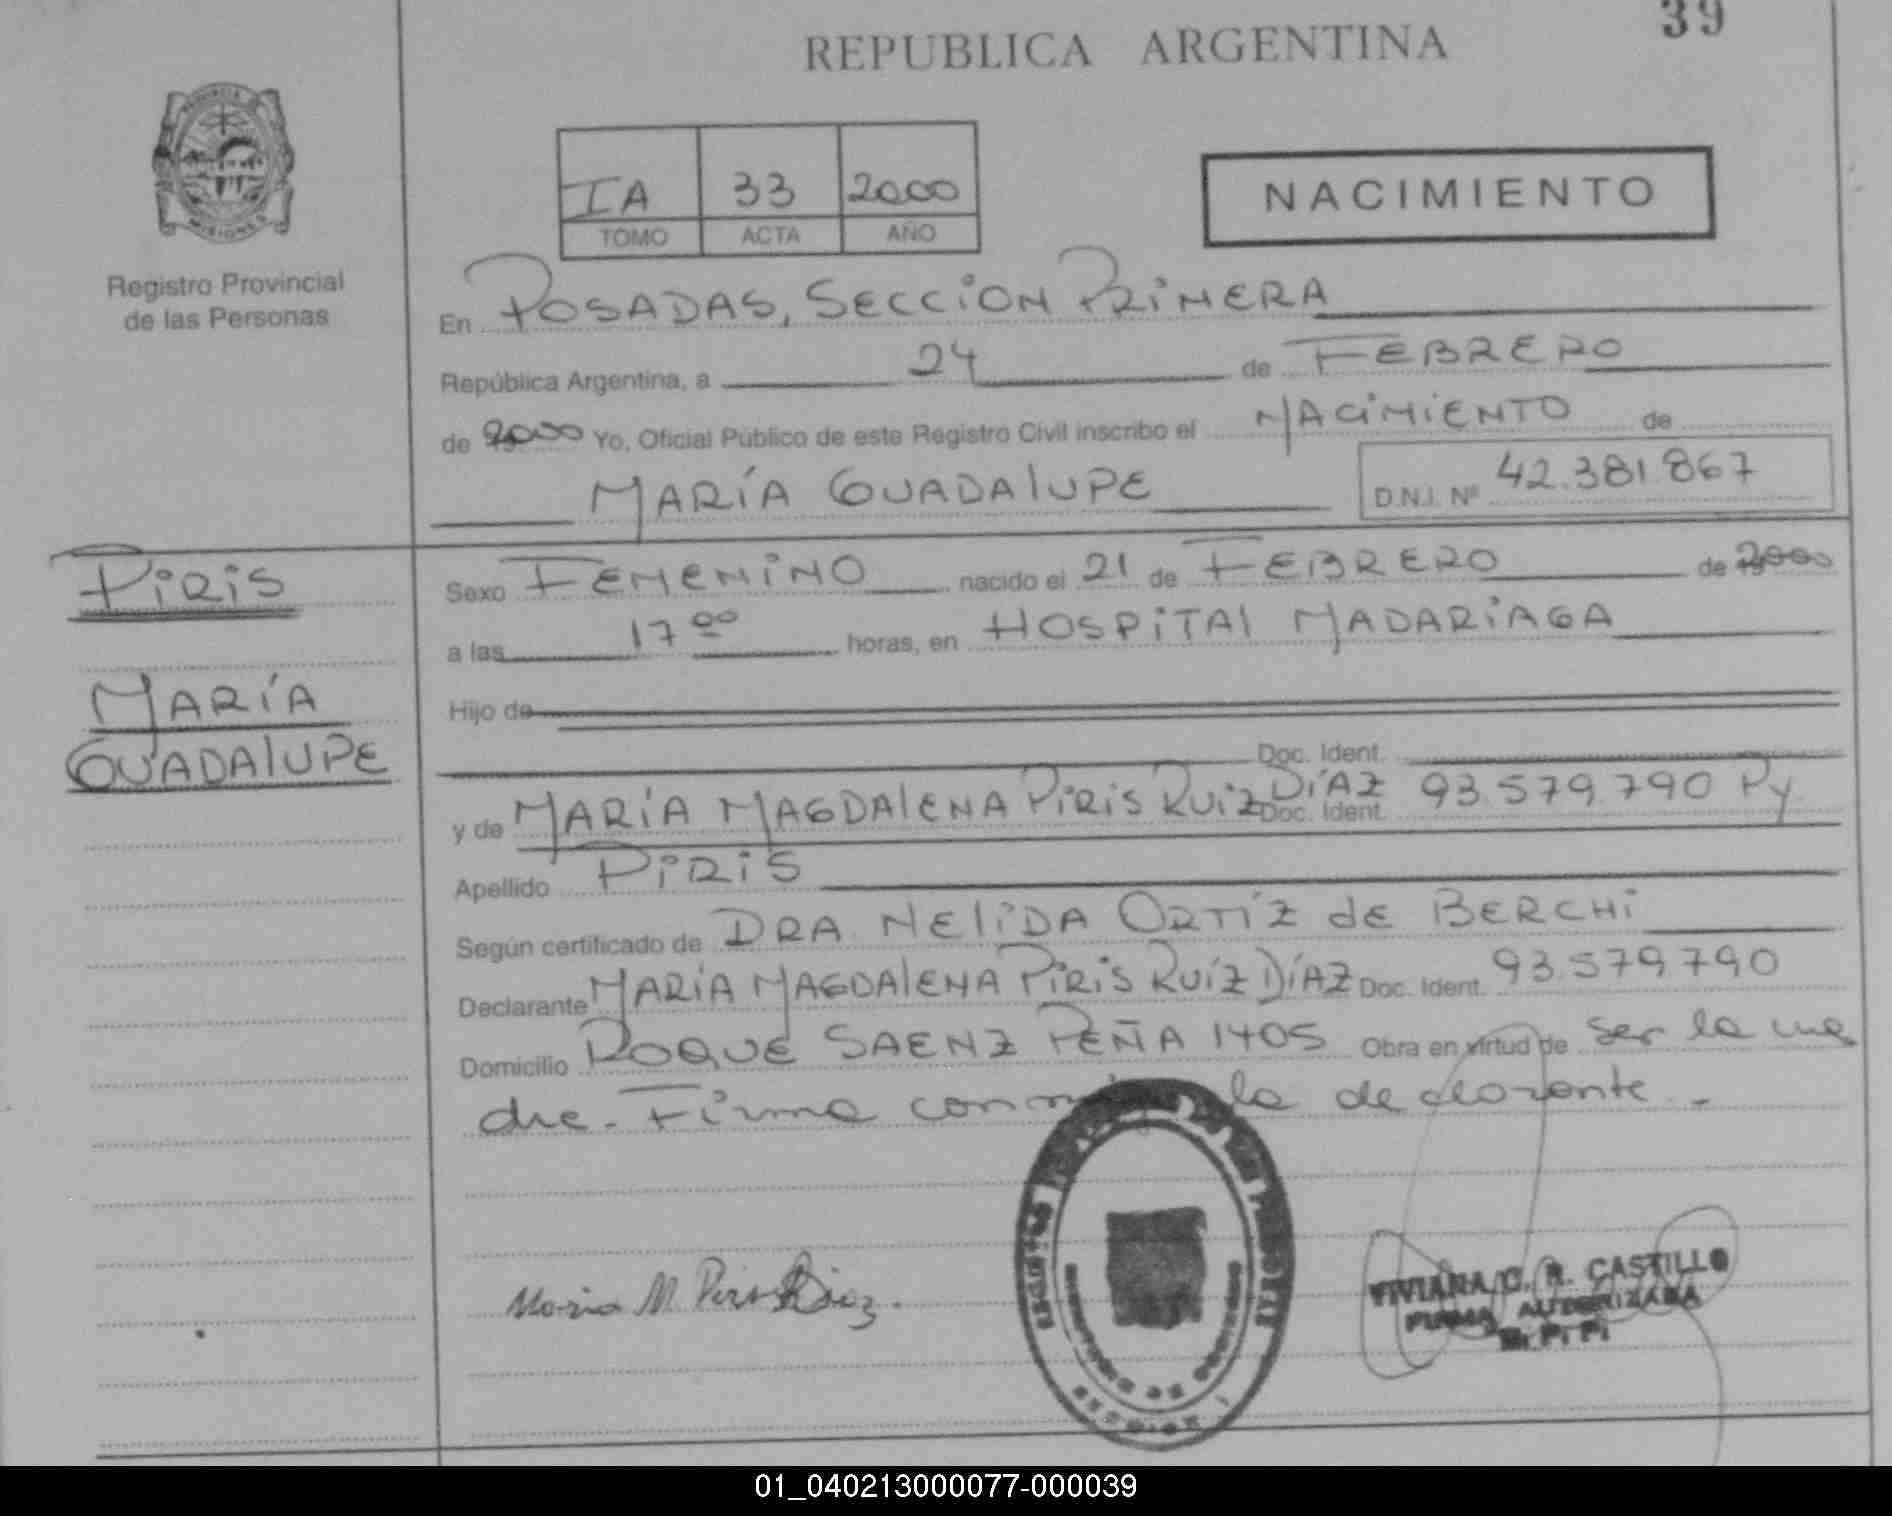 39
REPUBLICA ARGENTINA
PROVINCIA DE
MISIONES
Registro Provincial
de las Personas
IA 33 2000
TOMO ACTA AÑO
NACIMIENTO
En POSADAS, SECCION PRIMERA
República Argentina, a 24 de FEBRERO
de 2000 Yo, Oficial Público de este Registro Civil inscribo el NACIMIENTO de
MARÍA GUADALUPE D.N.I. Nº 42.381.867
PIRIS
MARÍA
GUADALUPE
Sexo FEMENINO nacido el 21 de FEBRERO de 2000
a las 17 00 horas, en HOSPITAL MADARIAGA
Hijo de
Doc. Ident.
y de MARÍA MAGDALENA PIRIS RUIZ DÍAZ Doc. Ident. 93.579.790 Py
Apellido PIRIS
Según certificado de DRA. NELIDA ORTÍZ de BERCHI
Declarante MARÍA MAGDALENA PIRIS RUÍZ DÍAZ Doc. Ident. 93.579.790
Domicilio ROQUE SAENZ PEÑA 1405 Obra en virtud de ser la ma
dre. Firma conmigo la declarante.-
Maria M. Piris R Diaz.
VIVIANA C. R. CASTILLO
FIRMA AUTORIZADA
01_040213000077-000039